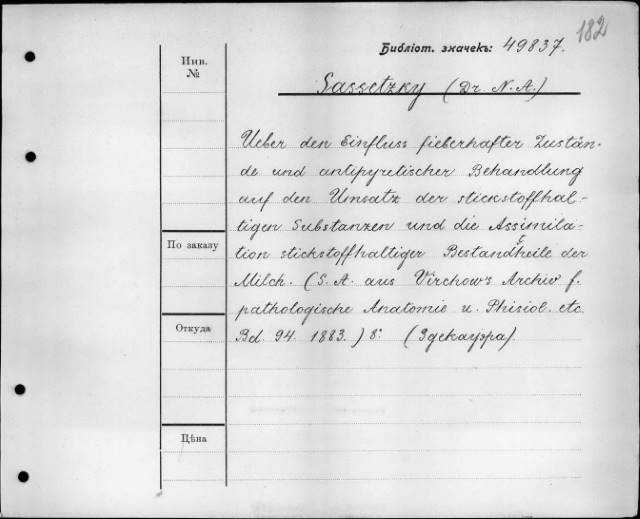 182
Библіот. значекъ: 49837.
Sassetzky (Dr. N. A.)
Инв.
№
Ueber den Einfluss fieberhafter Zustän-
de und antipyretischer Behandlung
auf den Umsatz der stickstoffhal-
tigen Substanzen und die Assimila-
tion stickstoffhaltiger Bestandtheile der
Milch. (S. A. aus Virchow's Archiv f.
pathologische Anatomie u. Phisiol. etc.
Bd. 94. 1883.) 8°. (Эдекауэра)
По заказу
Откуда
Цѣна